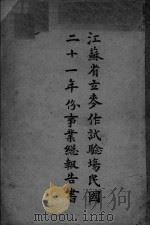 江蘇省立麥作試驗塲民國
二十一年份事業總報告書
mtoou.info